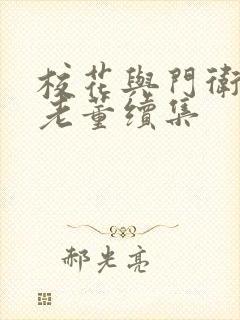 校花與門衛
老董續集
郝光亮